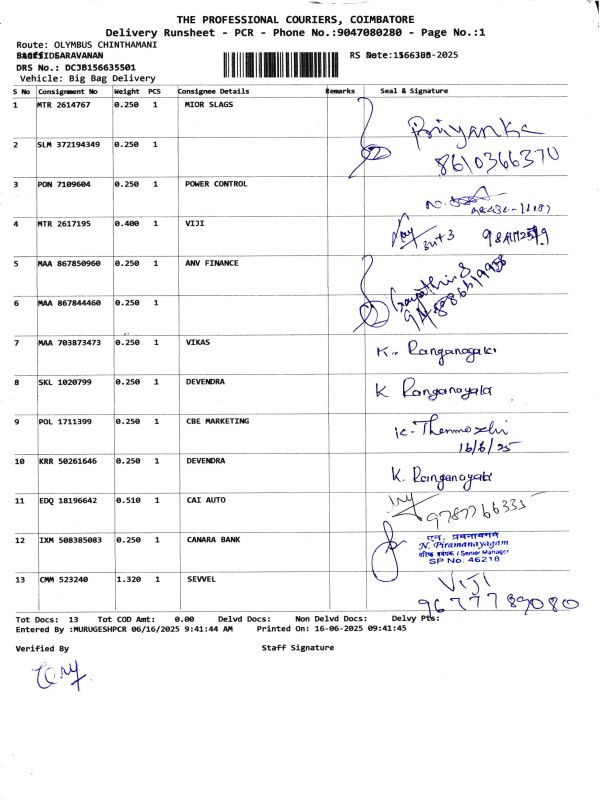 THE PROFESSIONAL COURIERS, COIMBATORE
Delivery Runsheet - PCR - Phone No.:9047080280 - Page No.:1
Route: OLYMBUS CHINTHAMANI
RS Date:
-2025
DRS No.: DCJB156635501
Vehicle: Big Bag Delivery
S No Consignment No Weight PCS Consignee Details Remarks Seal & Signature
1 MTR 2614767 0.250 1 MIOR SLAGS
Priyanka
8610366370
2 SLM 372194349 0.250 1
3 PON 7109604 0.250 1 POWER CONTROL
4 MTR 2617195 0.400 1 VIJI
5 MAA 867850960 0.250 1 ANV FINANCE
Gayathri S
6 MAA 867844460 0.250 1
7 MAA 703873473 0.250 1 VIKAS
K. Ranganayaki
8 SKL 1020799 0.250 1 DEVENDRA
K Ranganayaki
9 POL 1711399 0.250 1 CBE MARKETING
K. Thenmozhi
16/6/25
10 KRR 50261646 0.250 1 DEVENDRA
K. Ranganayaki
11 EDQ 18196642 0.510 1 CAI AUTO
9787766335
12 IXM 508385083 0.250 1 CANARA BANK
N. Piramanayagam
वरिष्ठ प्रबंधक / Senior Manager
SP No. 46218
13 CMM 523240 1.320 1 SEVVEL
VIJI
9677789080
Tot Docs: 13 Tot COD Amt: 0.00 Delvd Docs: Non Delvd Docs: Delvy Pts:
Entered By :MURUGESHPCR 06/16/2025 9:41:44 AM Printed On: 16-06-2025 09:41:45
Verified By Staff Signature